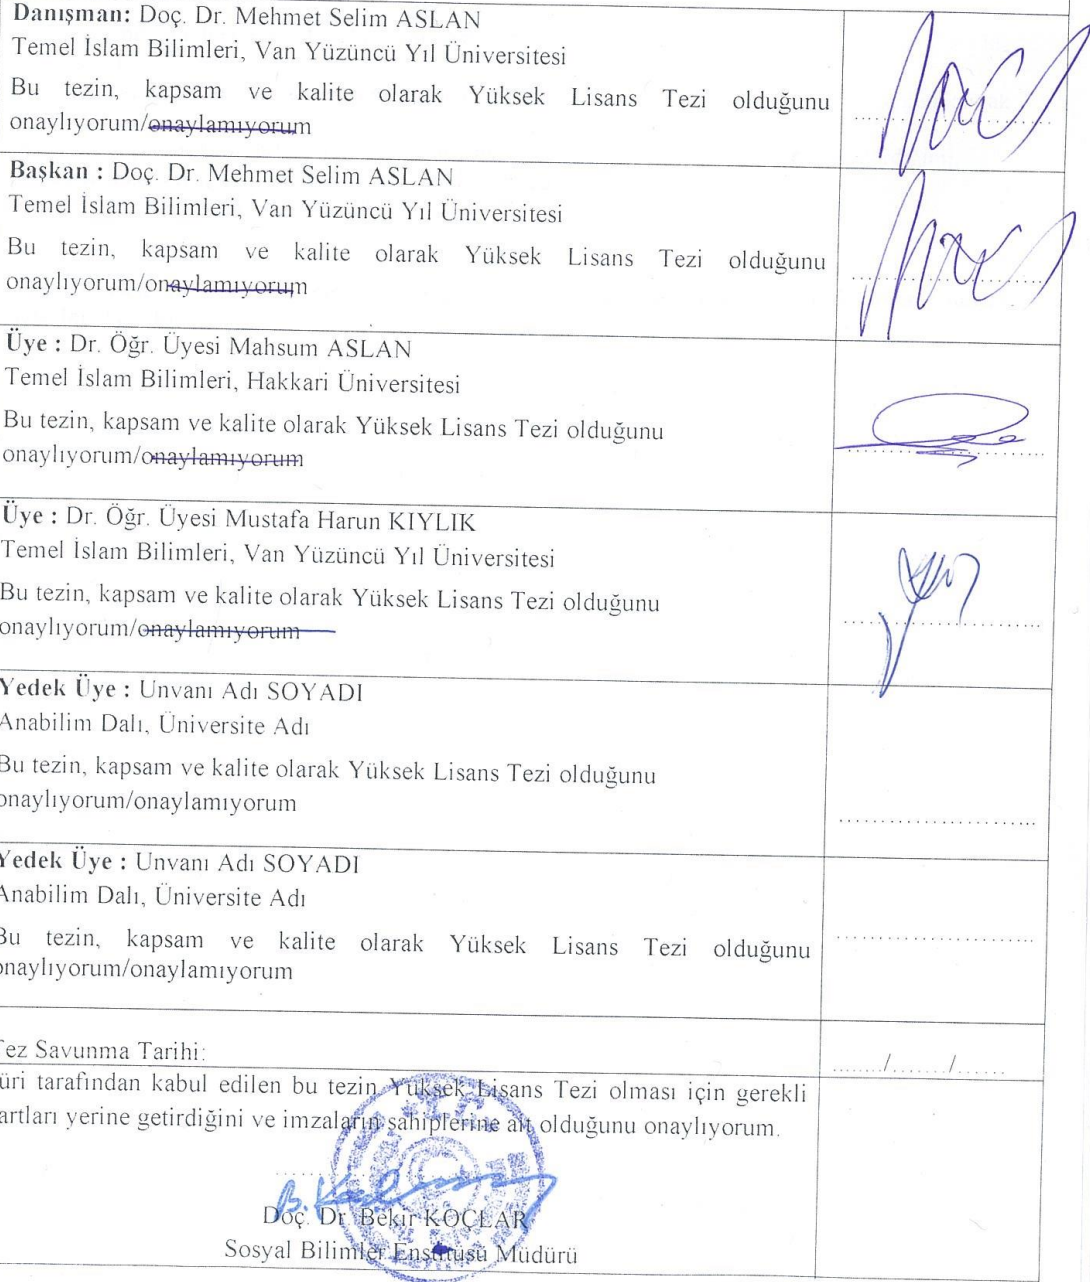 Danışman: Doç. Dr. Mehmet Selim ASLAN
Temel İslam Bilimleri, Van Yüzüncü Yıl Üniversitesi
Bu tezin, kapsam ve kalite olarak Yüksek Lisans Tezi olduğunu
onaylıyorum/onaylamıyorum
Başkan : Doç. Dr. Mehmet Selim ASLAN
Temel İslam Bilimleri, Van Yüzüncü Yıl Üniversitesi
Bu tezin, kapsam ve kalite olarak Yüksek Lisans Tezi olduğunu
onaylıyorum/onaylamıyorum
Üye : Dr. Öğr. Üyesi Mahsum ASLAN
Temel İslam Bilimleri, Hakkari Üniversitesi
Bu tezin, kapsam ve kalite olarak Yüksek Lisans Tezi olduğunu
onaylıyorum/onaylamıyorum
Üye : Dr. Öğr. Üyesi Mustafa Harun KIYLIK
Temel İslam Bilimleri, Van Yüzüncü Yıl Üniversitesi
Bu tezin, kapsam ve kalite olarak Yüksek Lisans Tezi olduğunu
onaylıyorum/onaylamıyorum
Yedek Üye : Unvanı Adı SOYADI
Anabilim Dalı, Üniversite Adı
Bu tezin, kapsam ve kalite olarak Yüksek Lisans Tezi olduğunu
onaylıyorum/onaylamıyorum
Yedek Üye : Unvanı Adı SOYADI
Anabilim Dalı, Üniversite Adı
Bu tezin, kapsam ve kalite olarak Yüksek Lisans Tezi olduğunu
onaylıyorum/onaylamıyorum
Tez Savunma Tarihi: ......./......../......
üri tarafından kabul edilen bu tezin Yüksek Lisans Tezi olması için gerekli
artları yerine getirdiğini ve imzaların sahiplerine ait olduğunu onaylıyorum.
Doç. Dr. Bekir KOÇLAR
Sosyal Bilimler Enstitüsü Müdürü